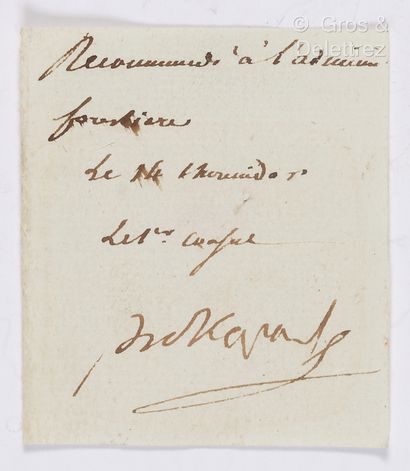 © Gros &
Delettrez
Recommandé à l'admin
forestiere
Le 14 thermidor
Le 1er consul